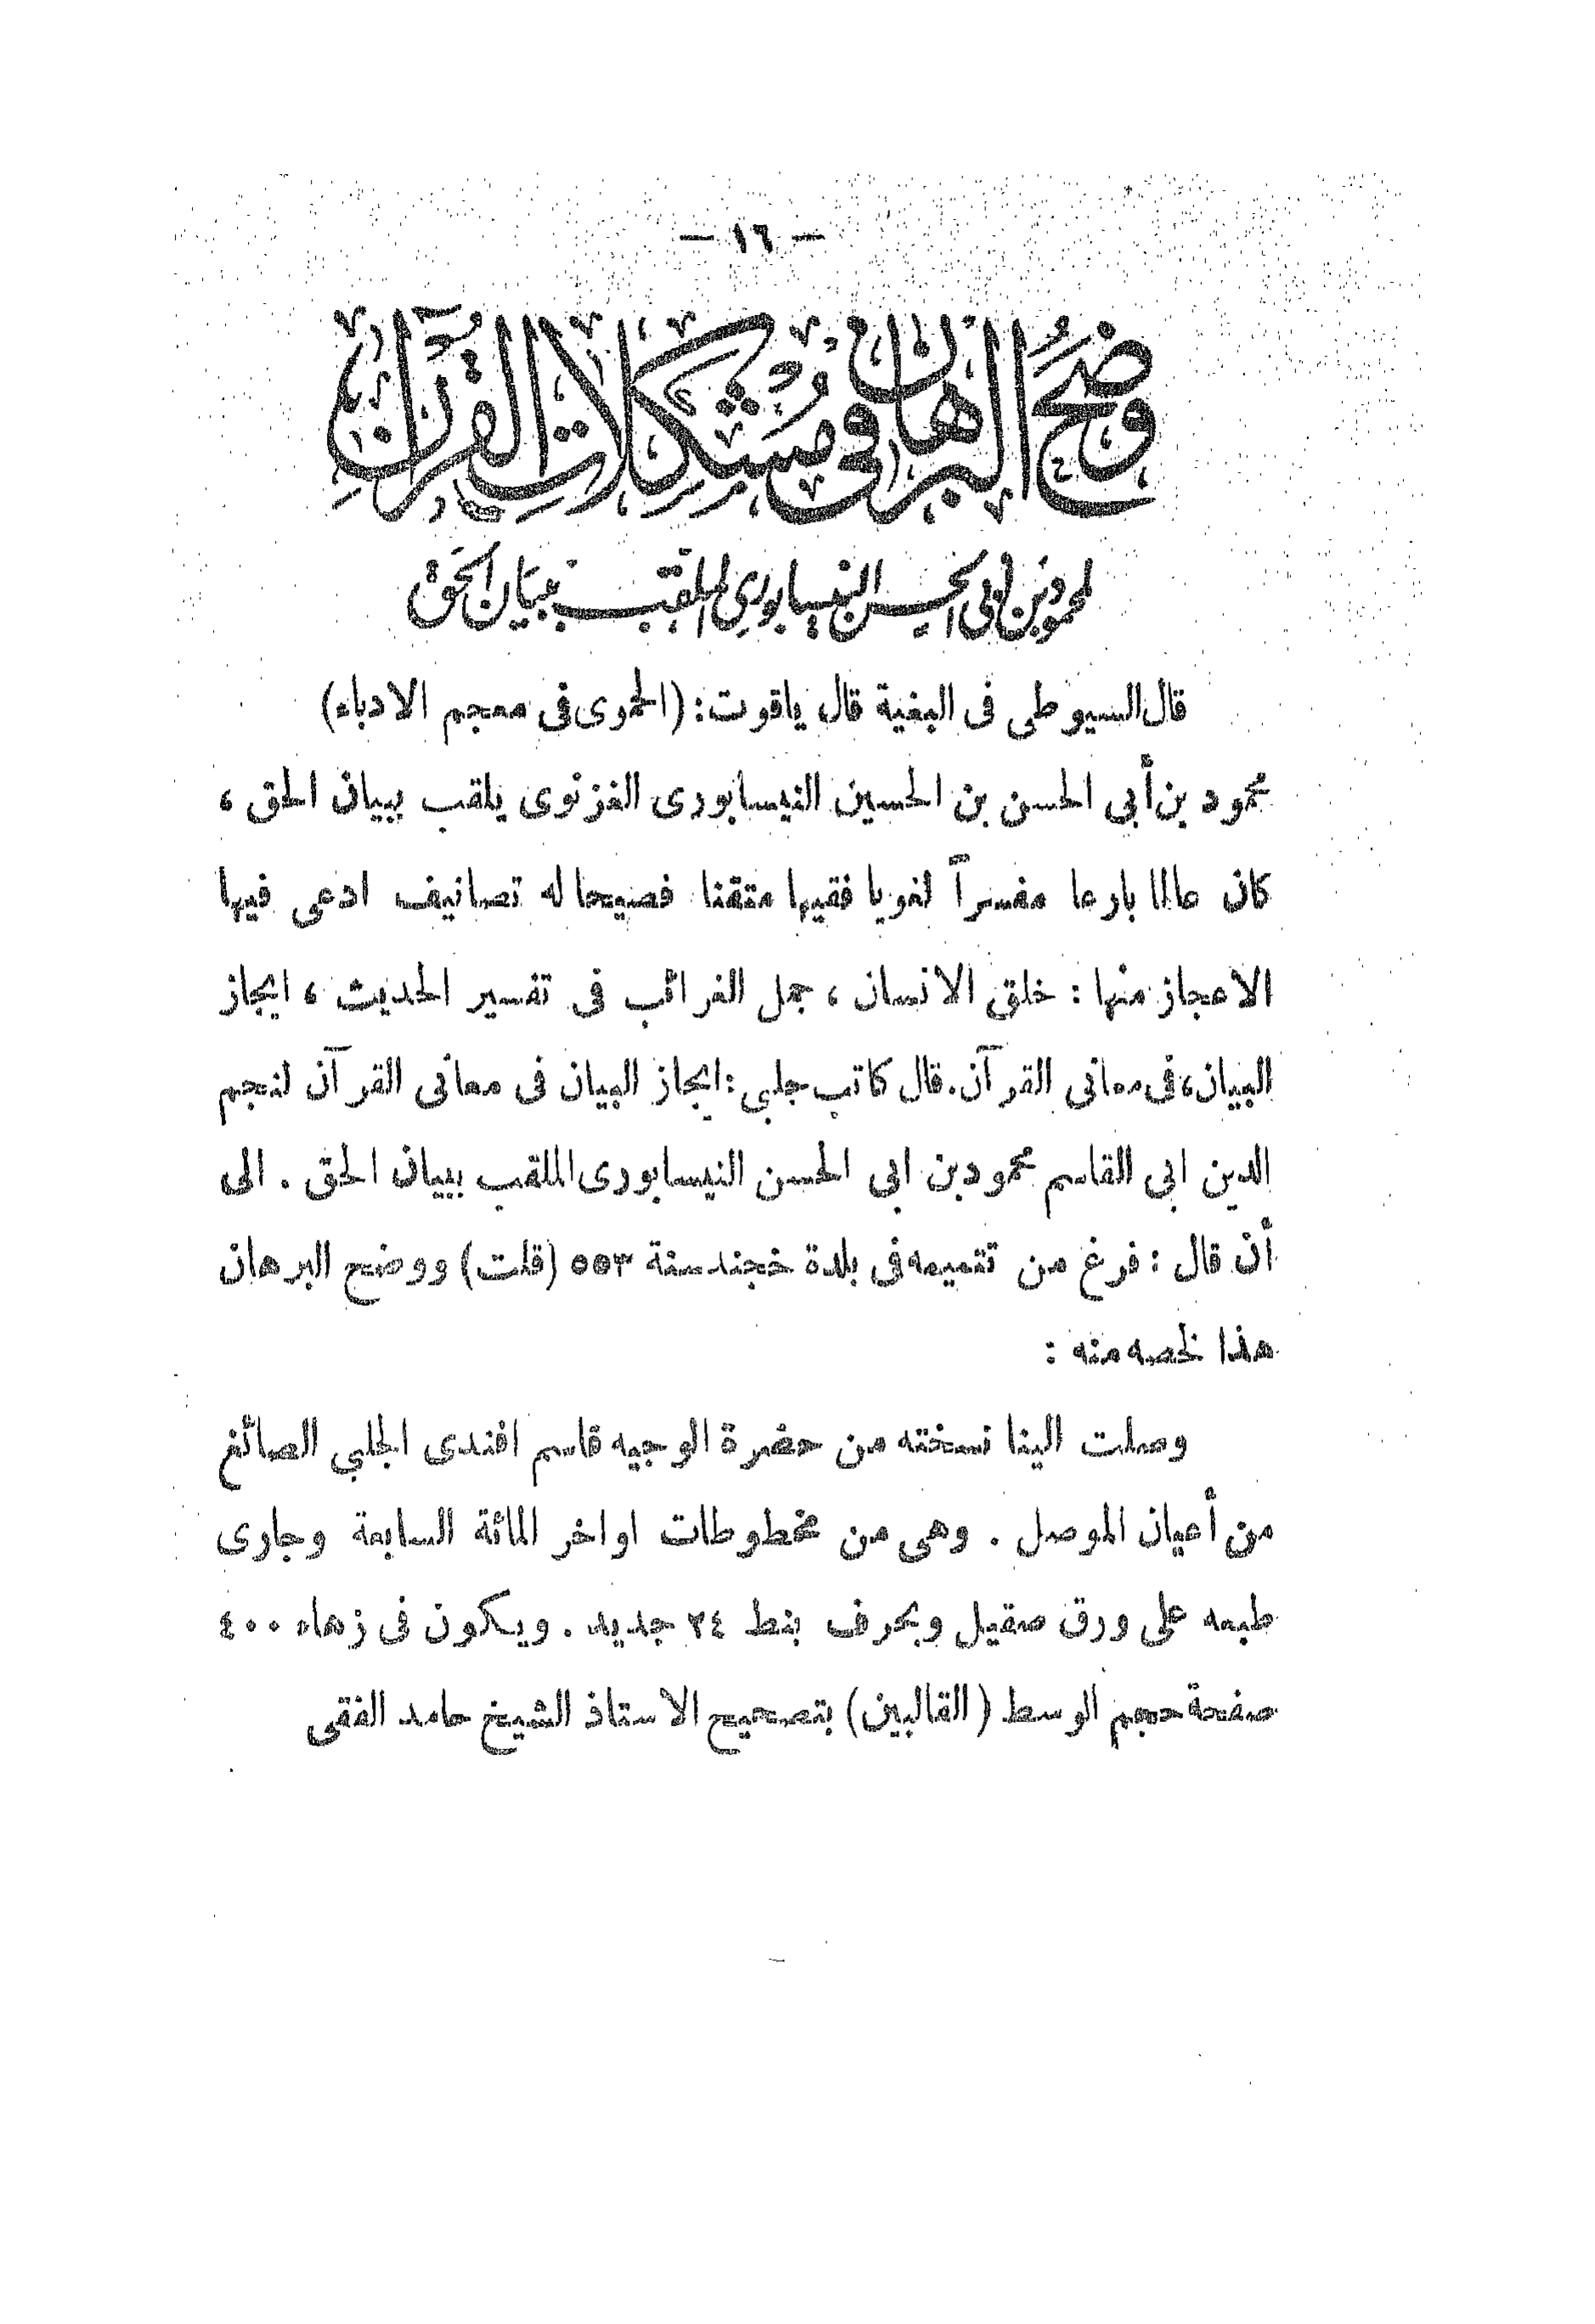 — ١٦ —
وضح البرهان في مشكلات القرآن
لمحمود بن أبي الحسن النيسابوري الملقب ببيان الحق
قال السيوطى فى البغية قال ياقوت: (الحموى فى معجم الادباء)
محمود بن أبي الحسن بن الحسين النيسابورى الغزنوى يلقب ببيان الحق ،
كان عالما بارعا مفسراً لغويا فقيها متقنا فصيحا له تصانيف ادعى فيها
الاعجاز منها : خلق الانسان ، جمل الغرائب فى تفسير الحديث ، ايجاز
البيان، فى معانى القرآن. قال كاتب جلبي: ايجاز البيان فى معانى القرآن لنجم
الدين ابي القاسم محمود بن ابى الحسن النيسابورى الملقب ببيان الحق . الى
أن قال : فرغ من تتميمه فى بلدة خجند سنة ٥٥٣ (قلت) ووضح البرهان
هذا لخصه منه :
وصلت الينا نسخته من حضرة الوجيه قاسم افندى الجلبي الصائغ
من أعيان الموصل . وهى من مخطوطات اواخر المائة السابعة وجارى
طبعه على ورق صقيل وبحرف بنط ٢٤ جديد . ويكون فى زهاء ٤٠٠
صفحة حجم الوسط (القالبين) بتصحيح الاستاذ الشيخ حامد الفقى